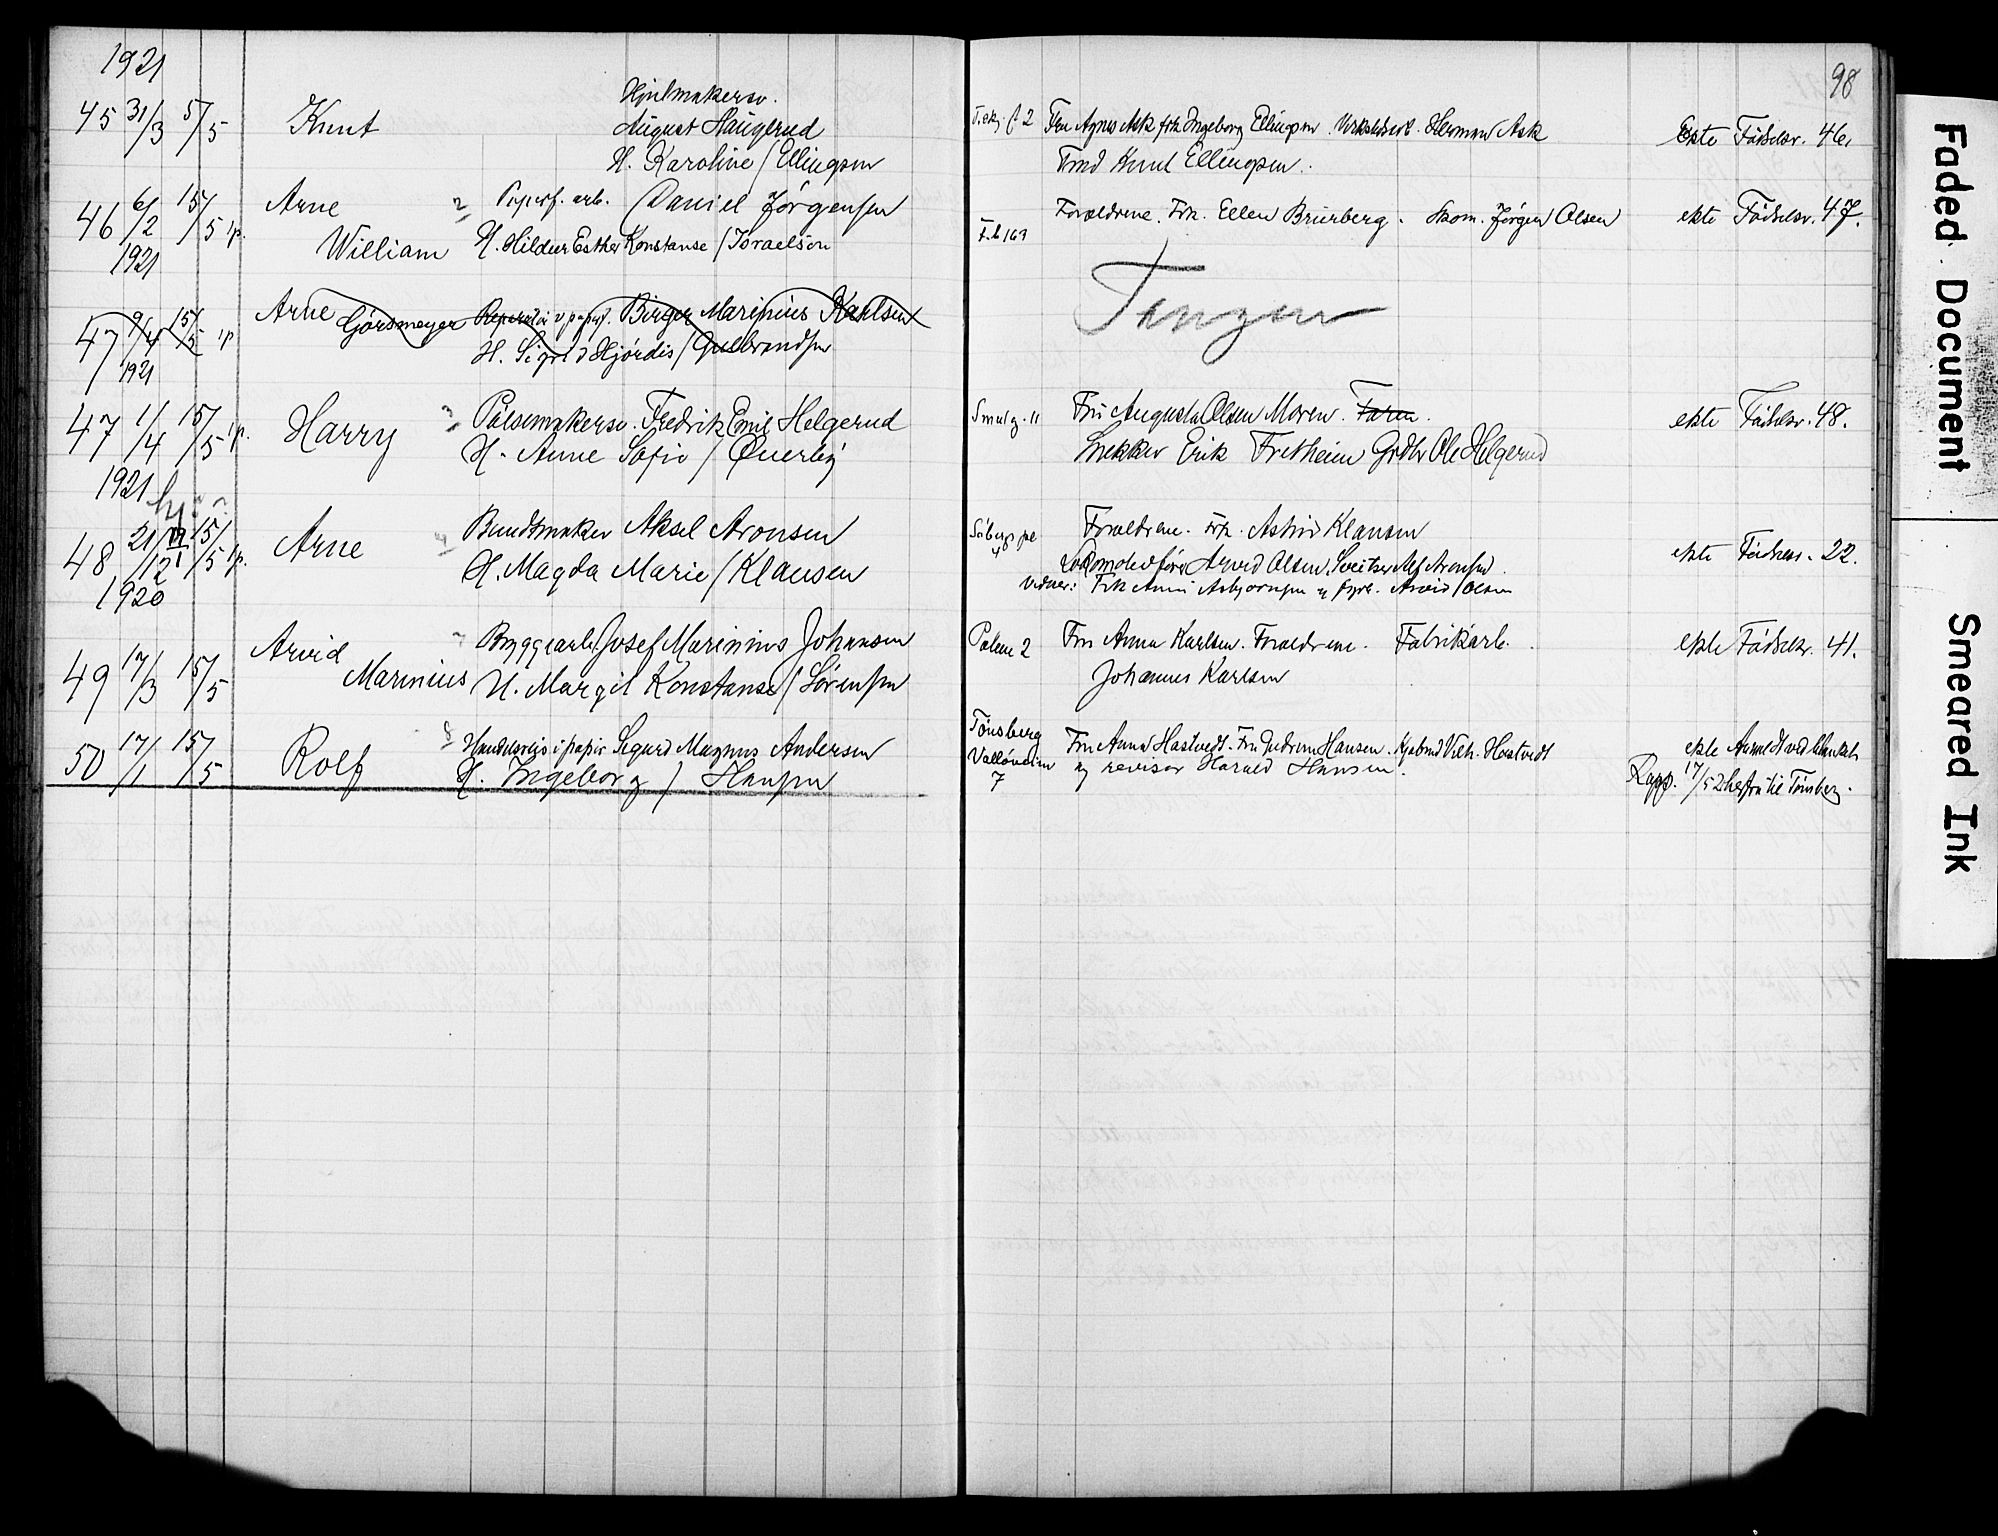 1921
98
45 31/3 5/5 Knut
Hjulmakersv.
August Haugerud
H. Karoline / Ellingsen
2 Fru Agnes Ask frk Ingeborg Ellingsen. Herman Ask
Knut Ellingsen.
ekte Fødselsr. 46.
46 6/2 15/5 1p.
1921
Arne
William
2 Papirf. arb. Daniel Jørgensen
H. Hildur Esther Konstanse / Israelsen
F.b 169
Forældrene. Frk. Ellen Bruerberg. Skom. Jørgen Olsen
ekte Fødselsr. 47.
47 9/4 15/5 1p
1921
Arne
Gjørsmeyer
Birger Marinius Karlsen
H. Sigrid Hjørdis / Gulbrandsen
47 1/4 15/5 1p.
1921
Harry
3 Pølsemakersv. Fredrik Emil Helgerud
H. Anne Sofie / Øverby
Smalg. 11
Fru Augusta Olsen Moren. Faren.
Snekker Erik Fretheim Grdbr Ole Helgerud
ekte Fødselsr. 48.
48 21/12 15/5 1p.
1920
hj.
Arne
4 Bundtmaker Aksel Aronsen
H. Magda Marie / Klausen
4
Forældrene. Frk. Astrid Klausen
Arvid Olsen. Sveitser Alf Aronsen.
Vidner: Frk Anni Asbjørnsen og fyrb. Arvid Olsen
ekte Fødselsr. 22.
49 17/3 15/5
Arvid
Marinius
Byggearb. Josef Marinius Johansen
H. Margit Konstanse / Sørensen
Palme 2
Fru Anna Karlsen. Forældrene. Fabrikarb.
Johannes Karlsen
ekte Fødselsr. 41.
50 17/1 15/5
Rolf
8 Handelsreis. i papir Sigurd Magnus Andersen
H. Ingeborg / Hansen
Tønsberg
7
Fru Anna Hastvedt. Fru Gudrun Hansen. Kjøbmd Vilh. Hastvedt
og revisor Harald Hansen.
ekte Anmeldt ved
Rapp. 17/5 til Tønsberg.
Faded Document
Smeared Ink